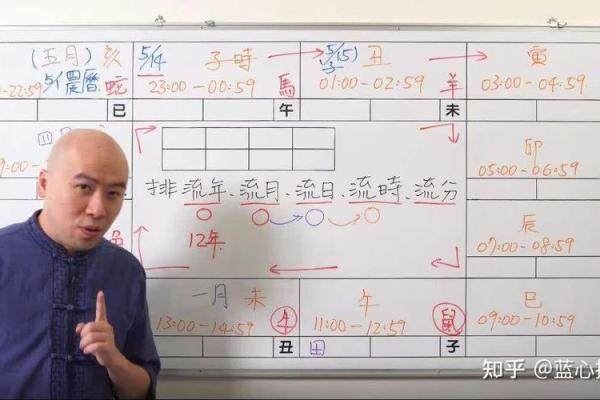 (五月) 亥
-22:59 5/ 農曆 蛇
巳
5/14 子時
23:00-00:59 馬
午
5/(5) 丑
子
01:00-02:59 羊
未
寅
03:00-04:59
卯
05:00-06:59
四
9:00-
排流年、流月、流日、流時、流分
12年
辰
07:00-08:59
一月 未
13:00-14:59 牛
丑
午
11:00-12:59 鼠
田 子
巳
09:00-10:59
知乎 @蓝心